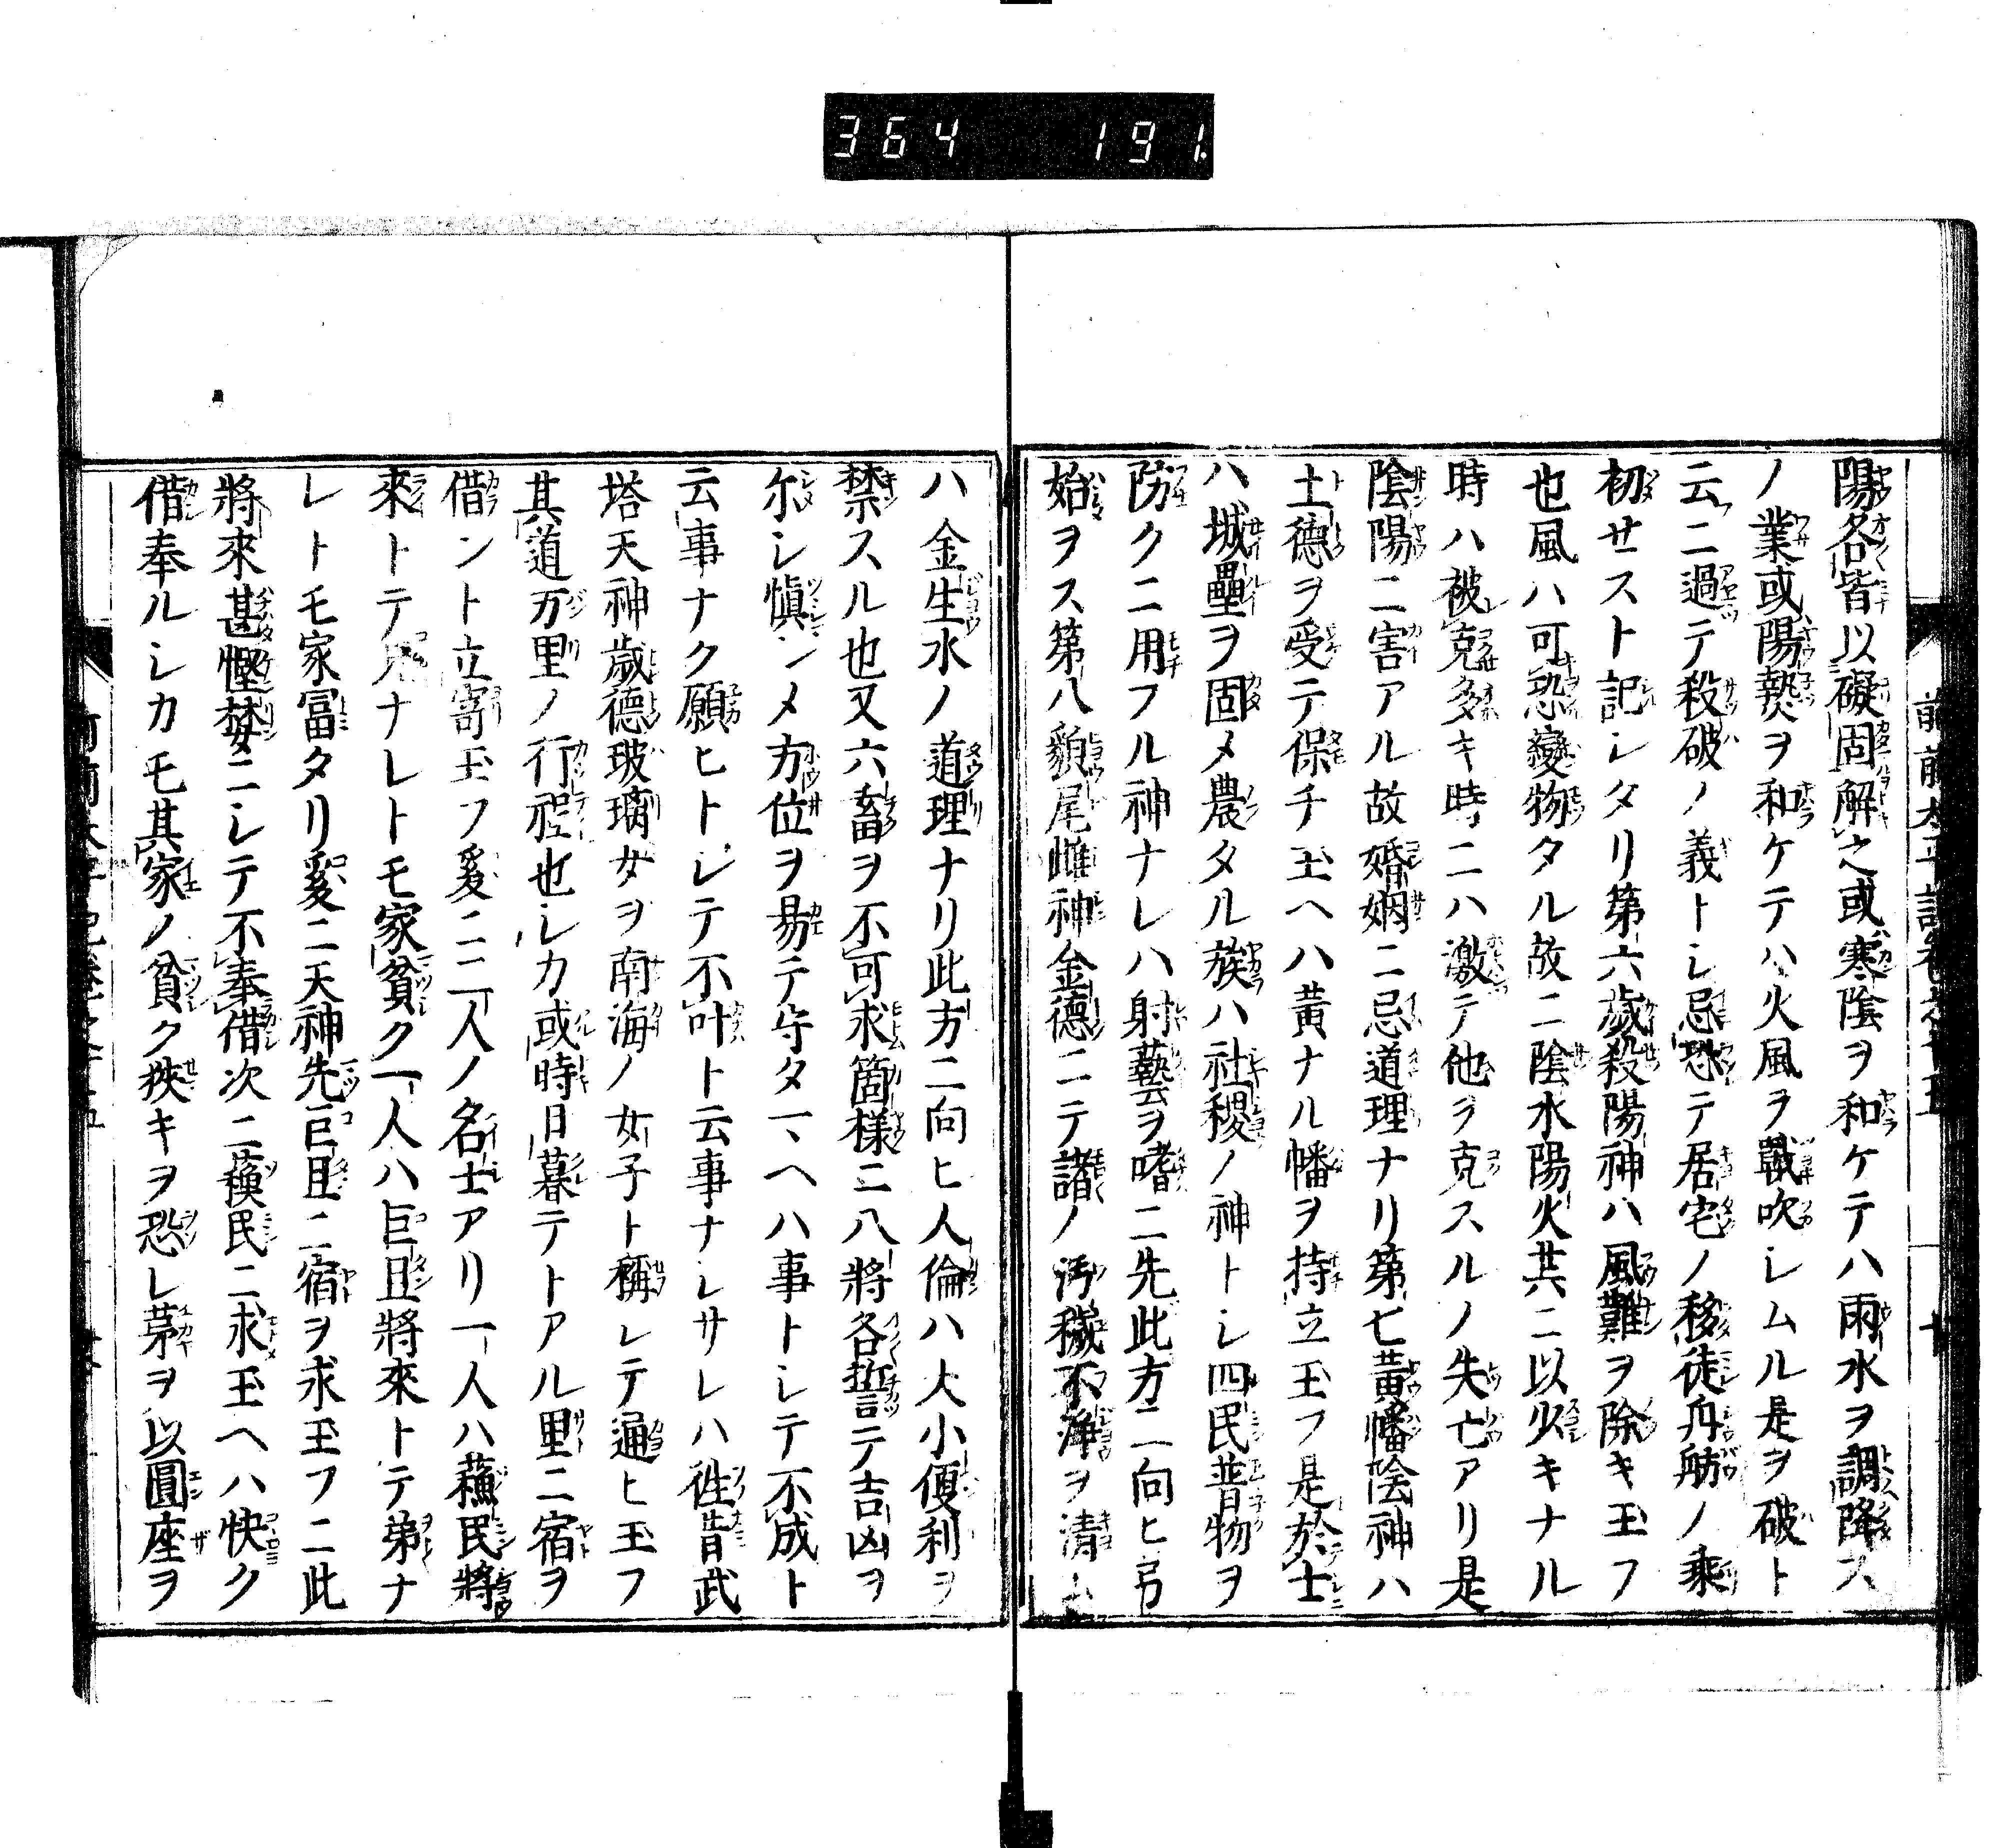 364 191.
前前太平記卷之十五 十
陽各皆以礙固解之或寒陰ヲ和ケテハ雨水ヲ調降ス
ノ業或陽熱ヲ和ケテハ火風ヲ戰吹シムル是ヲ破ト
云二過テ殺破ノ義トシ忌恐テ居宅ノ移徒舟舫ノ乘
初セスト記シタリ第六歲殺陽神ハ風難ヲ除キ玉フ
也風ハ可恐變物タル故ニ陰水陽火其ニ以少キナル
時ハ被克多キ時ニハ激テ他ヲ克スルノ失亡アリ是
陰陽ニ害アル故婚姻ニ忌道理ナリ第七黃幡陰神ハ
土德ヲ受テ保チ玉ヘハ黃ナル幡ヲ持立玉フ是於士
ハ城壘ヲ固メ農タル族ハ社稷ノ神トシ四民普物ヲ
防クニ用フル神ナレハ射藝ヲ嗜ニ先此方ニ向ヒ弓
始ヲス第八豹尾雌神金德ニテ諸ノ汚穢不淨ヲ清ム
ハ金生水ノ道理ナリ此方ニ向ヒ人倫ハ大小便利ヲ
禁スル也又六畜ヲ不可求箇樣ニ八將各誓テ吉凶ヲ
尓シ愼ンメ方位ヲ易テ守タマヘハ事トシテ不成ト
云事ナク願ヒトシテ不叶ト云事ナシサレハ徃昔武
塔天神歲德玻璃女ヲ南海ノ女子ト稱シテ通ヒ玉フ
其道万里ノ行程也シカ或時日暮テトアル里ニ宿ヲ
借ント立寄玉フ爰ニ二人ノ名士アリ一人ハ蘓民將
來トテ兄ナレトモ家貧ク一人ハ巨且將來トテ弟ナ
レトモ家冨タリ爰ニ天神先巨且ニ宿ヲ求玉フニ此
將來甚慳婪ニシテ不奉借次ニ蘓民ニ求玉ヘハ快ク
借奉ルシカモ其家ノ貧ク狹キヲ恐レ茅ヲ以圓座ヲ